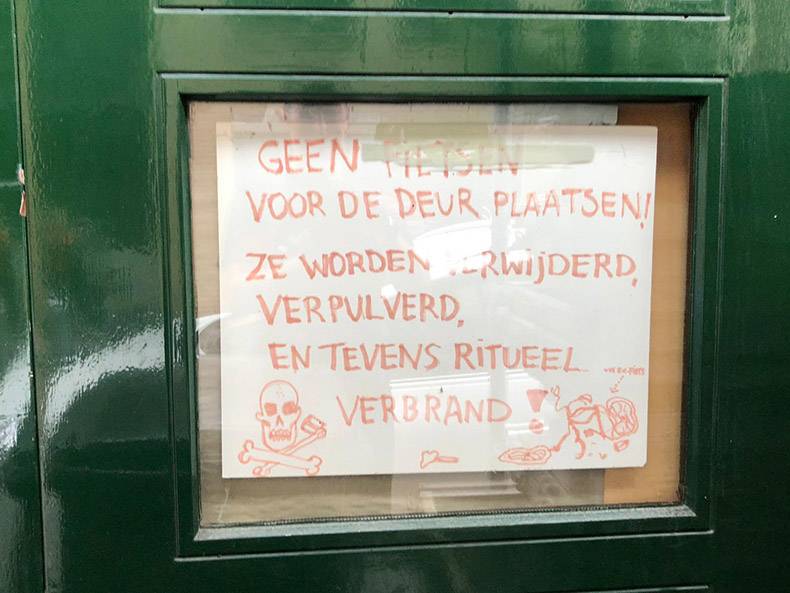 GEEN FIETSEN
VOOR DE DEUR PLAATSEN!
ZE WORDEN VERWIJDERD,
VERPULVERD,
EN TEVENS RITUEEL
VERBRAND!